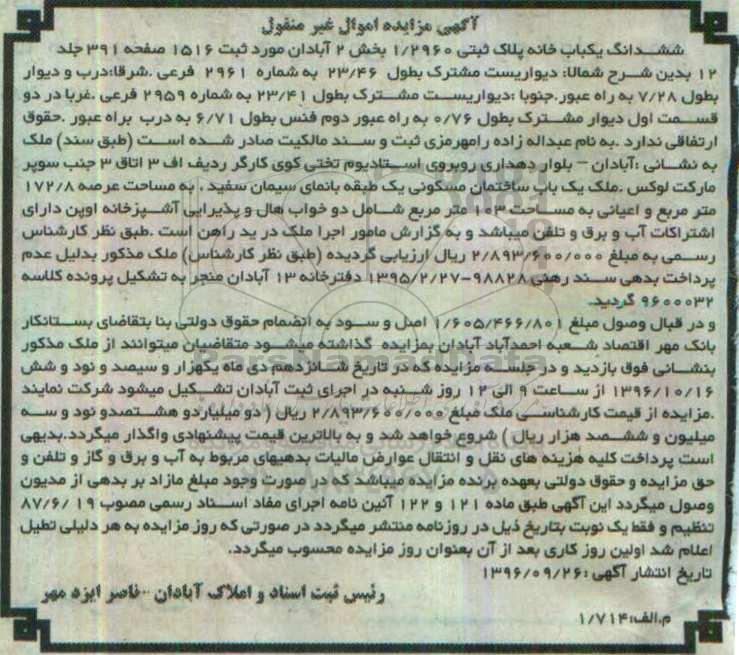 آگهی مزایده اموال غیر منقول
ششدانگ یکباب خانه پلاک ثبتی ۱/۲۹۶۰ بخش ۲ آبادان مورد ثبت ۱۵۱۶ صفحه ۳۹۱ جلد
۱۲ بدین شرح شمالا: دیواریست مشترک بطول ۲۳/۴۶ به شماره ۲۹۶۱ فرعی .شرقا:درب و دیوار
بطول ۷/۲۸ به راه عبور.جنوبا :دیواریست مشترک بطول ۲۳/۴۱ به شماره ۲۹۵۹ فرعی .غربا در دو
قسمت اول دیوار مشترک بطول ۰/۷۶ به راه عبور دوم فنس بطول ۶/۷۱ به درب براه عبور .حقوق
ارتفاقی ندارد .به نام عبداله زاده رامهرمزی ثبت و سند مالکیت صادر شده است (طبق سند) ملک
به نشانی :آبادان – بلوار دهداری روبروی استادیوم تختی کوی کارگر ردیف اف ۳ اتاق ۳ جنب سوپر
مارکت لوکس .ملک یک باب ساختمان مسکونی یک طبقه بانمای سیمان سفید . به مساحت عرصه ۱۷۲/۸
متر مربع و اعیانی به مساحت ۱۰۳ متر مربع شامل دو خواب هال و پذیرایی آشپزخانه اوپن دارای
اشتراکات آب و برق و تلفن میباشد و به گزارش مامور اجرا ملک در ید راهن است .طبق نظر کارشناس
رسمی به مبلغ ۲/۸۹۳/۶۰۰/۰۰۰ ریال ارزیابی گردیده (طبق نظر کارشناس) ملک مذکور بدلیل عدم
پرداخت بدهی سند رهنی ۹۸۸۲۸-۱۳۹۵/۲/۲۷ دفترخانه ۱۳ آبادان منجر به تشکیل پرونده کلاسه
۹۶۰۰۰۳۲ گردید.
و در قبال وصول مبلغ ۱/۶۰۵/۴۶۶/۸۰۱ اصل و سود به انضمام حقوق دولتی بنا بتقاضای بستانکار
بانک مهر اقتصاد شعبه احمدآباد آبادان بمزایده گذاشته میشود متقاضیان میتوانند از ملک مذکور
بنشانی فوق بازدید و در جلسه مزایده که در تاریخ شانزدهم دی ماه یکهزار و سیصد و نود و شش
۱۳۹۶/۱۰/۱۶ از ساعت ۹ الی ۱۲ روز شنبه در اجرای ثبت آبادان تشکیل میشود شرکت نمایند
.مزایده از قیمت کارشناسی ملک مبلغ ۲/۸۹۳/۶۰۰/۰۰۰ ریال ( دو میلیاردو هشتصدو نود و سه
میلیون و ششصد هزار ریال ) شروع خواهد شد و به بالاترین قیمت پیشنهادی واگذار میگردد.بدیهی
است پرداخت کلیه هزینه های نقل و انتقال عوارض مالیات بدهیهای مربوط به آب و برق و گاز و تلفن و
حق مزایده و حقوق دولتی بعهده برنده مزایده میباشد که در صورت وجود مبلغ مازاد بر بدهی از مدیون
وصول میگردد این آگهی طبق ماده ۱۲۱ و ۱۲۲ آئین نامه اجرای مفاد اسناد رسمی مصوب ۸۷/۶/۱۹
تنظیم و فقط یک نوبت بتاریخ ذیل در روزنامه منتشر میگردد در صورتی که روز مزایده به هر دلیلی تطیل
اعلام شد اولین روز کاری بعد از آن بعنوان روز مزایده محسوب میگردد.
تاریخ انتشار آگهی :۱۳۹۶/۰۹/۲۶
رئیس ثبت اسناد و املاک آبادان -ناصر ایزد مهر
م.الف:۱/۷۱۴